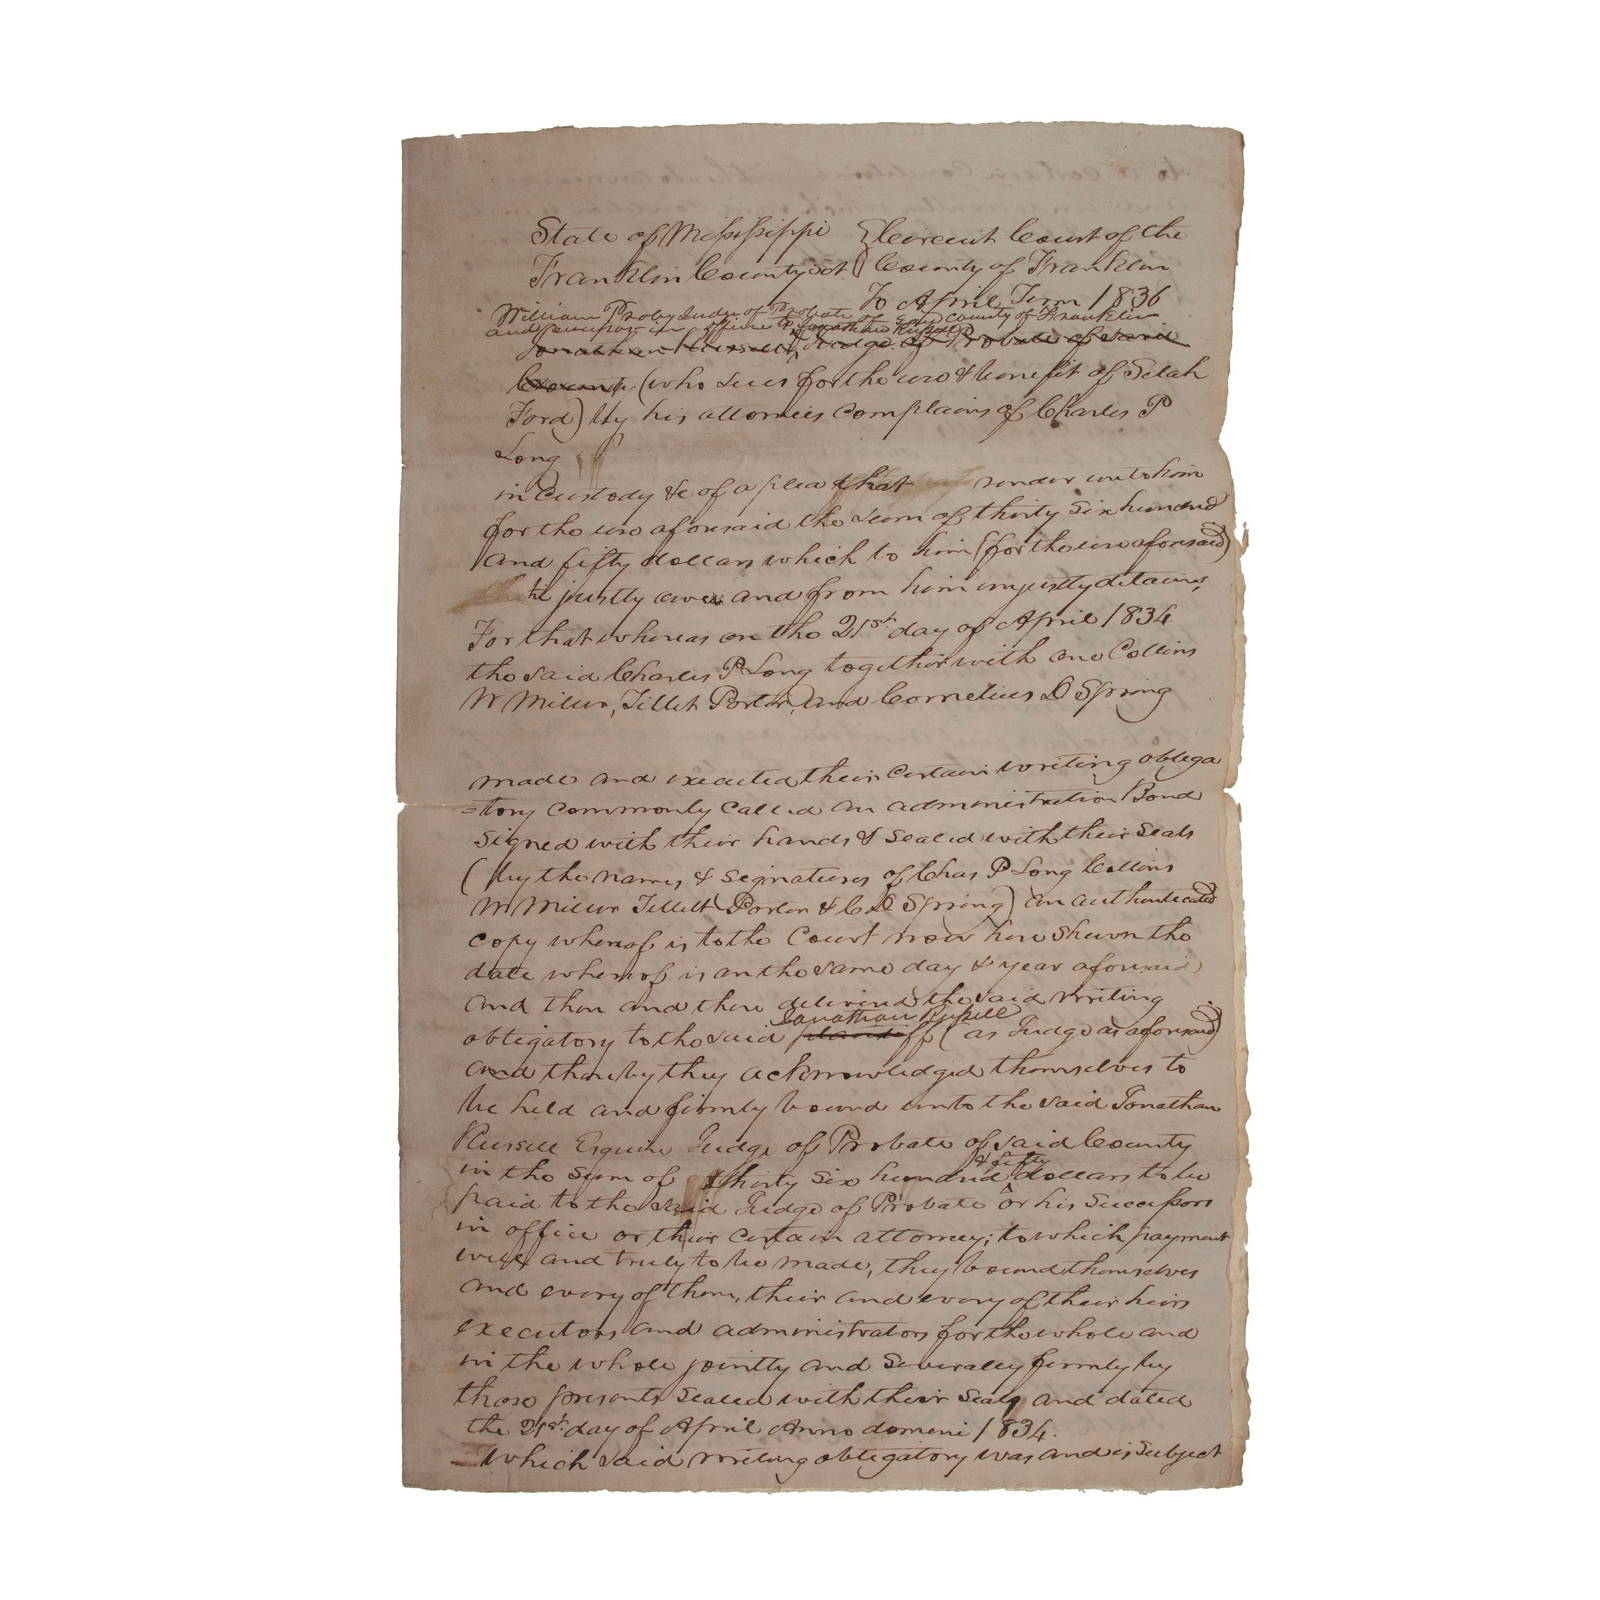 State of Mississippi } Circuit Court of the
Franklin County Sct } County of Franklin
To April Term 1836
William Proby Judge of Probate of said County of Franklin
and successor in office to Jonathan Russell
Jonathan Russell, Judge of Probate of said
County (who sues for the use & benefit of Selah
Ford) by his attornies complains of Charles P
Long
in custody &c of a plea that render unto him
for the use aforesaid the sum of thirty six hundred
and fifty dollars which to him (for the use aforesaid)
he justly owes and from him unjustly detains,
For that whereas on the 21st day of April 1834
the said Charles P Long together with one Collins
W Miller, Tillet Porter, and Cornelius D Spring
made and executed their certain writing obliga
=tory commonly called an administration Bond
signed with their hands & sealed with their seals
(by the names & signatures of Chas P Long Collins
W Miller Tillett Porter & C D Spring) an authenticated
copy whereof is to the Court now here shewn the
date whereof is on the same day & year aforesaid
and then and there delivered the said writing
Jonathan Russell
obligatory to the said plaintiff (as Judge as aforesaid)
and thereby they acknowledged themselves to
be held and firmly bound unto the said Jonathan
Russell Esquire Judge of Probate of said County
& fifty
in the sum of thirty six hundred dollars to be
paid to the said Judge of Probate or his Successors
in office or their certain attorney; to which payment
well and truly to be made, they bound themselves
and every of them, their and every of their heirs
executors and administrators for the whole and
in the whole jointly and severally firmly by
those presents sealed with their seals and dated
the 21st day of April Anno domini 1834.
Which said writing obligatory was and is subject